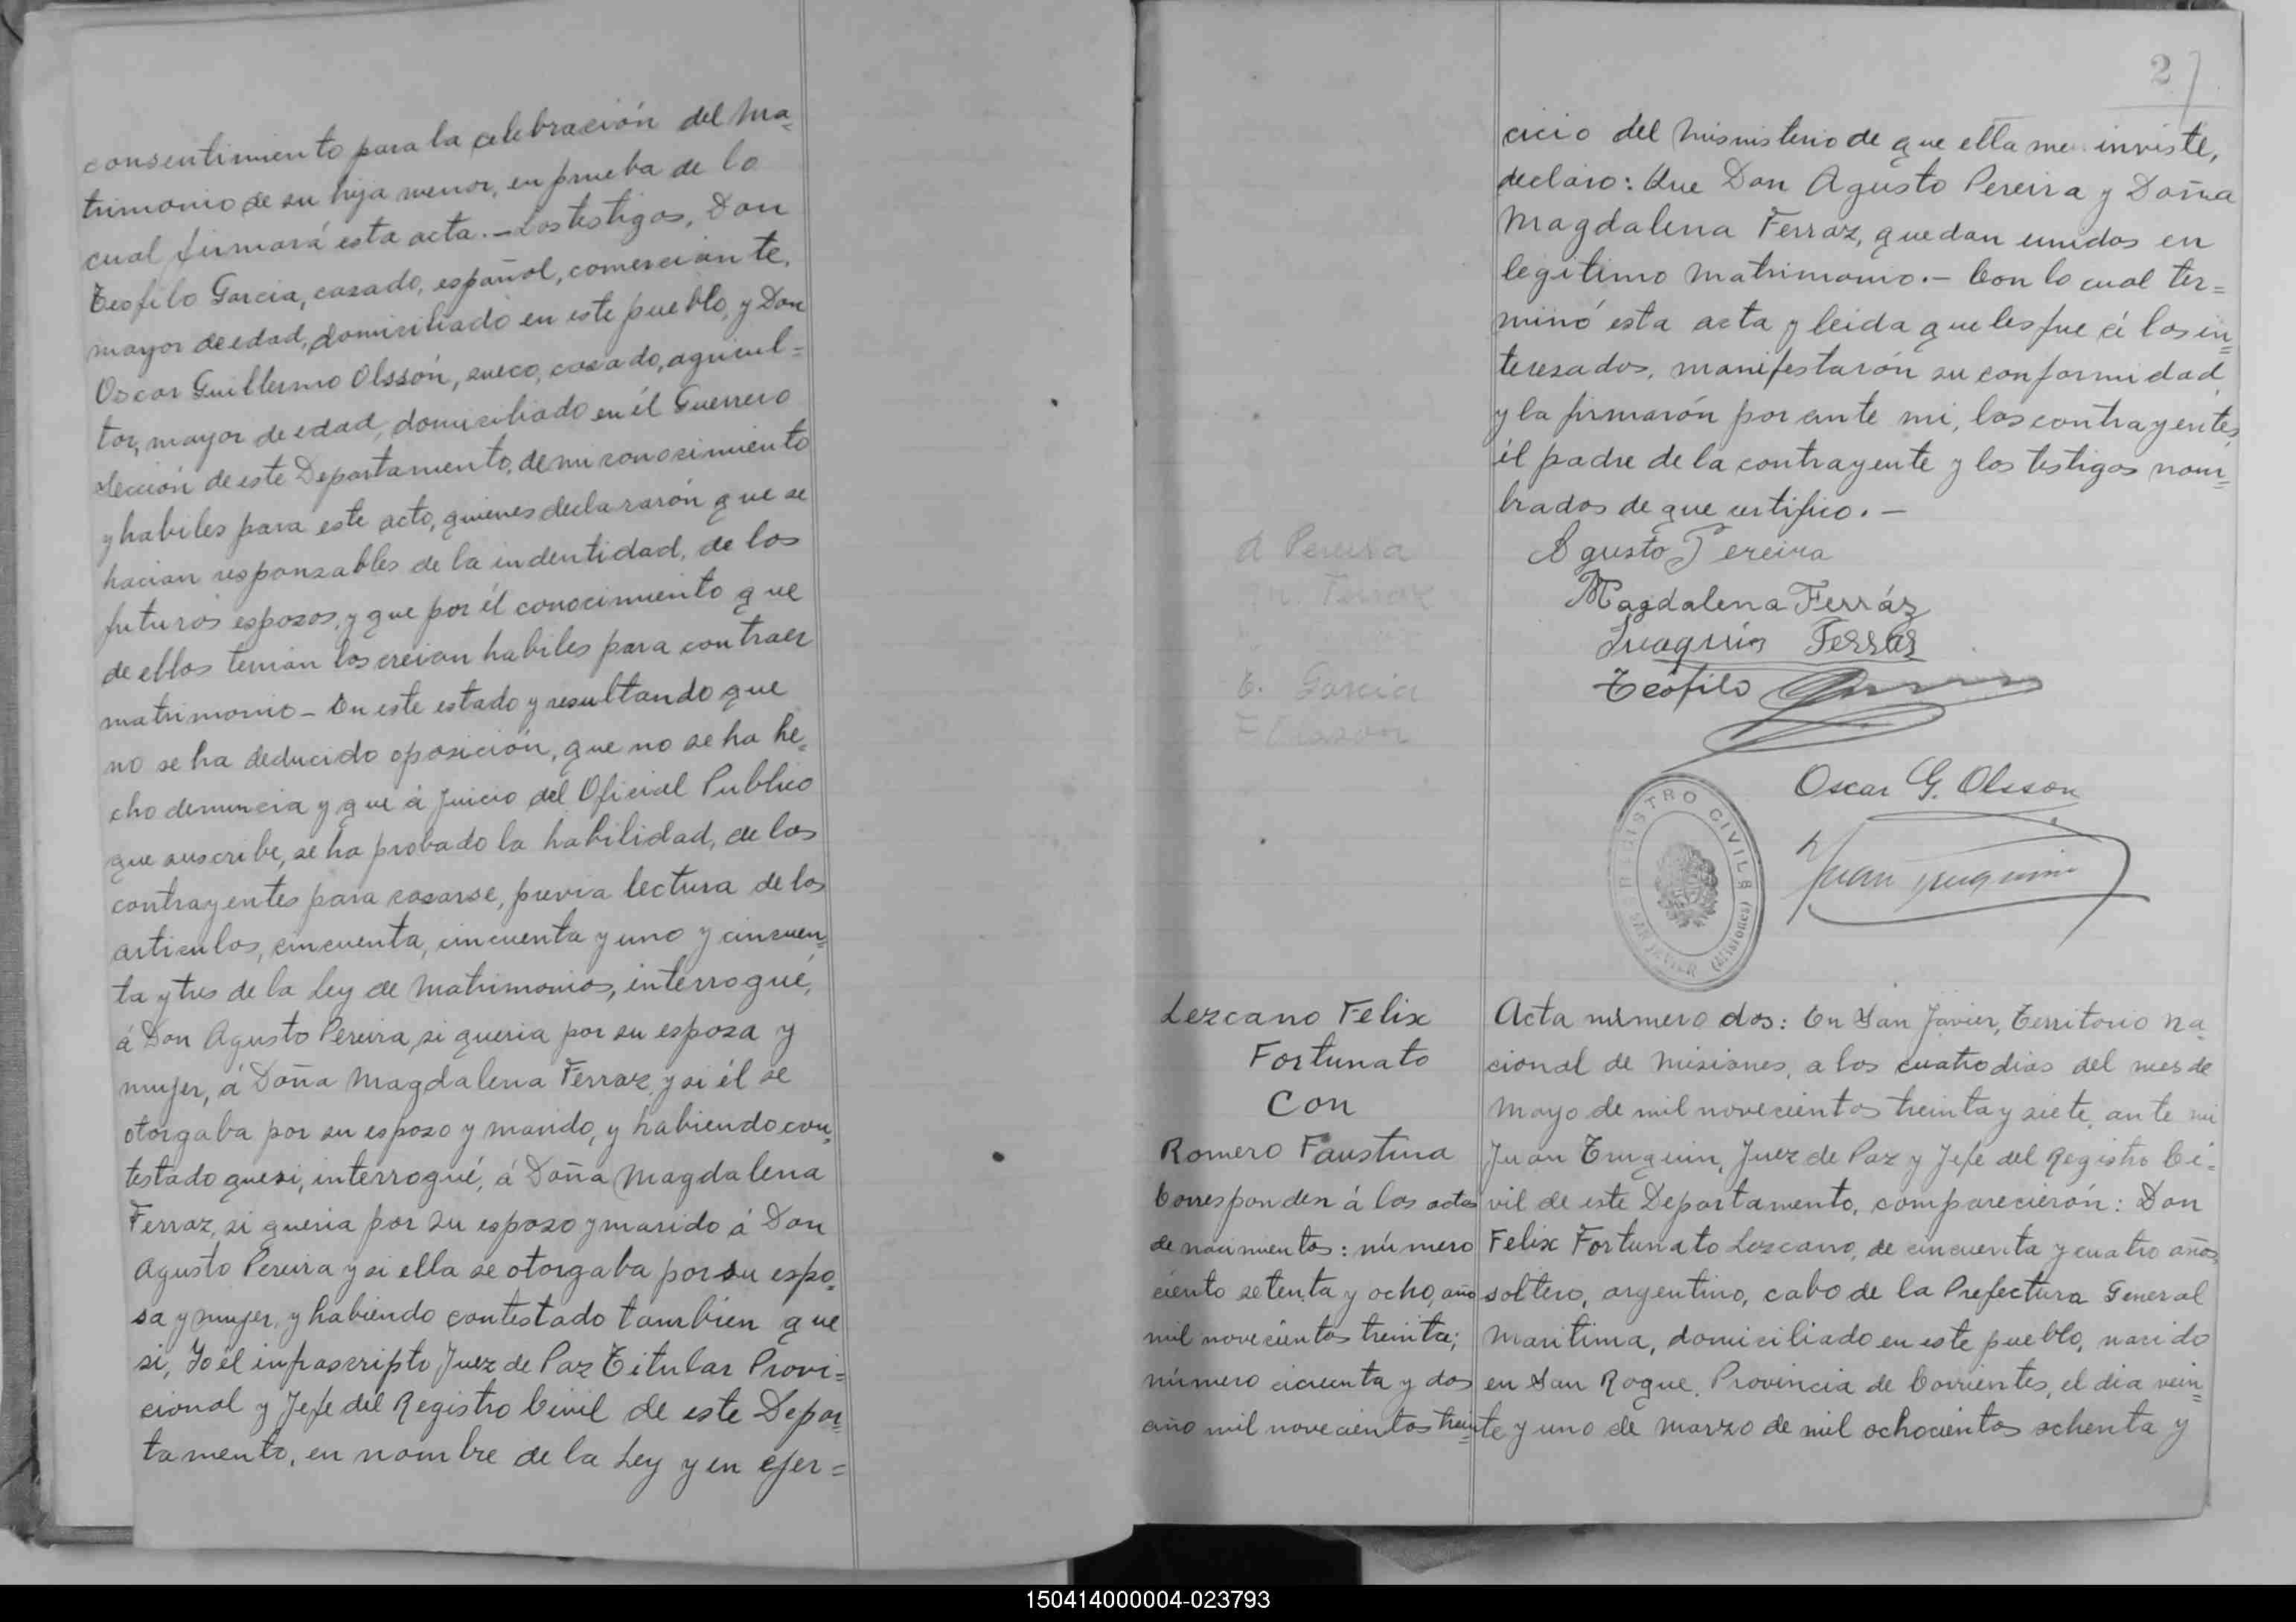 consentimiento para la celebración del Ma=
trimonio de su hija menor, en prueba de lo
cual firmará esta acta.— Los testigos, Don
Teofilo Garcia, casado, español, comerciante,
mayor de edad, domiciliado en este pueblo, y Don
Oscar Guillermo Olssón, sueco, casado, agricul=
tor, mayor de edad, domiciliado en él Guerrero
Sección de este Departamento, de mi conocimiento
y habiles para este acto, quienes declararón que se
hacian responsables de la indentidad, de los
futuros esposos, y que por él conocimiento que
de ellos tenian los creian habiles para contraer
matrimonio — En este estado y resultando que
no se ha deducido oposición, que no se ha he=
cho denuncia y que á Juicio del Oficial Publico
que suscribe, se ha probado la habilidad, de los
contrayentes para casarse, previa lectura de los
articulos, cincuenta, cincuenta y uno y cincuen=
ta y tres de la Ley de Matrimonios, interrogué,
á Don Agusto Pereira, si queria por su esposa y
mujer, á Doña Magdalena Ferraz, y si él se
otorgaba por su esposo y marido, y habiendo con=
testado que si, interrogué, á Doña Magdalena
Ferraz, si queria por su esposo y marido á Don
Agusto Pereira y si ella se otorgaba por su espo=
sa y mujer, y habiendo contestado tambien que
si, Yo él infrascripto Juez de Paz Titular Provi=
cional y Jefe del Registro Civil de este Depar=
tamento, en nombre de la Ley y en ejer=
27
cicio del Misnisterio de que ella me inviste,
declaro: Que Don Agusto Pereira y Doña
Magdalena Ferraz, quedan unidos en
legitimo Matrimonio.— Con lo cual ter=
minó esta acta y leida que les fue á los in=
teresados, manifestarón su conformidad
y la firmarón por ante mi, los contrayentes,
él padre de la contrayente y los testigos nom=
brados de que certifico.—
A Pereira
M. Ferraz
T. Garcia
Olsson
Agusto Pereira
Magdalena Ferráz
Juaquin Ferras
Teófilo Garcia
Oscar G. Olsson
Juan Truquin
REGISTRO CIVIL
SAN JAVIER (Misiones)
Lezcano Felix
Fortunato
Con
Romero Faustina
Corresponden á las actas
de nacimientos: número
ciento setenta y ocho, año
mil novecientos treinta;
número cicuenta y dos
año mil novecientos trein=
Acta número dos: En San Javier, Territorio Na=
cional de Misiones, a los cuatro dias del mes de
Mayo de mil novecientos treinta y siete, ante mi
Juan Truquin, Juez de Paz y Jefe del Registro Ci=
vil de este Departamento, comparecierón: Don
Felix Fortunato Lezcano, de cincuenta y cuatro años,
soltero, argentino, cabo de la Prefectura General
Maritima, domiciliado en este pueblo, nacido
en San Roque, Provincia de Corrientes, el dia vein=
te y uno de Marzo de mil ochocientos ochenta y
150414000004-023793